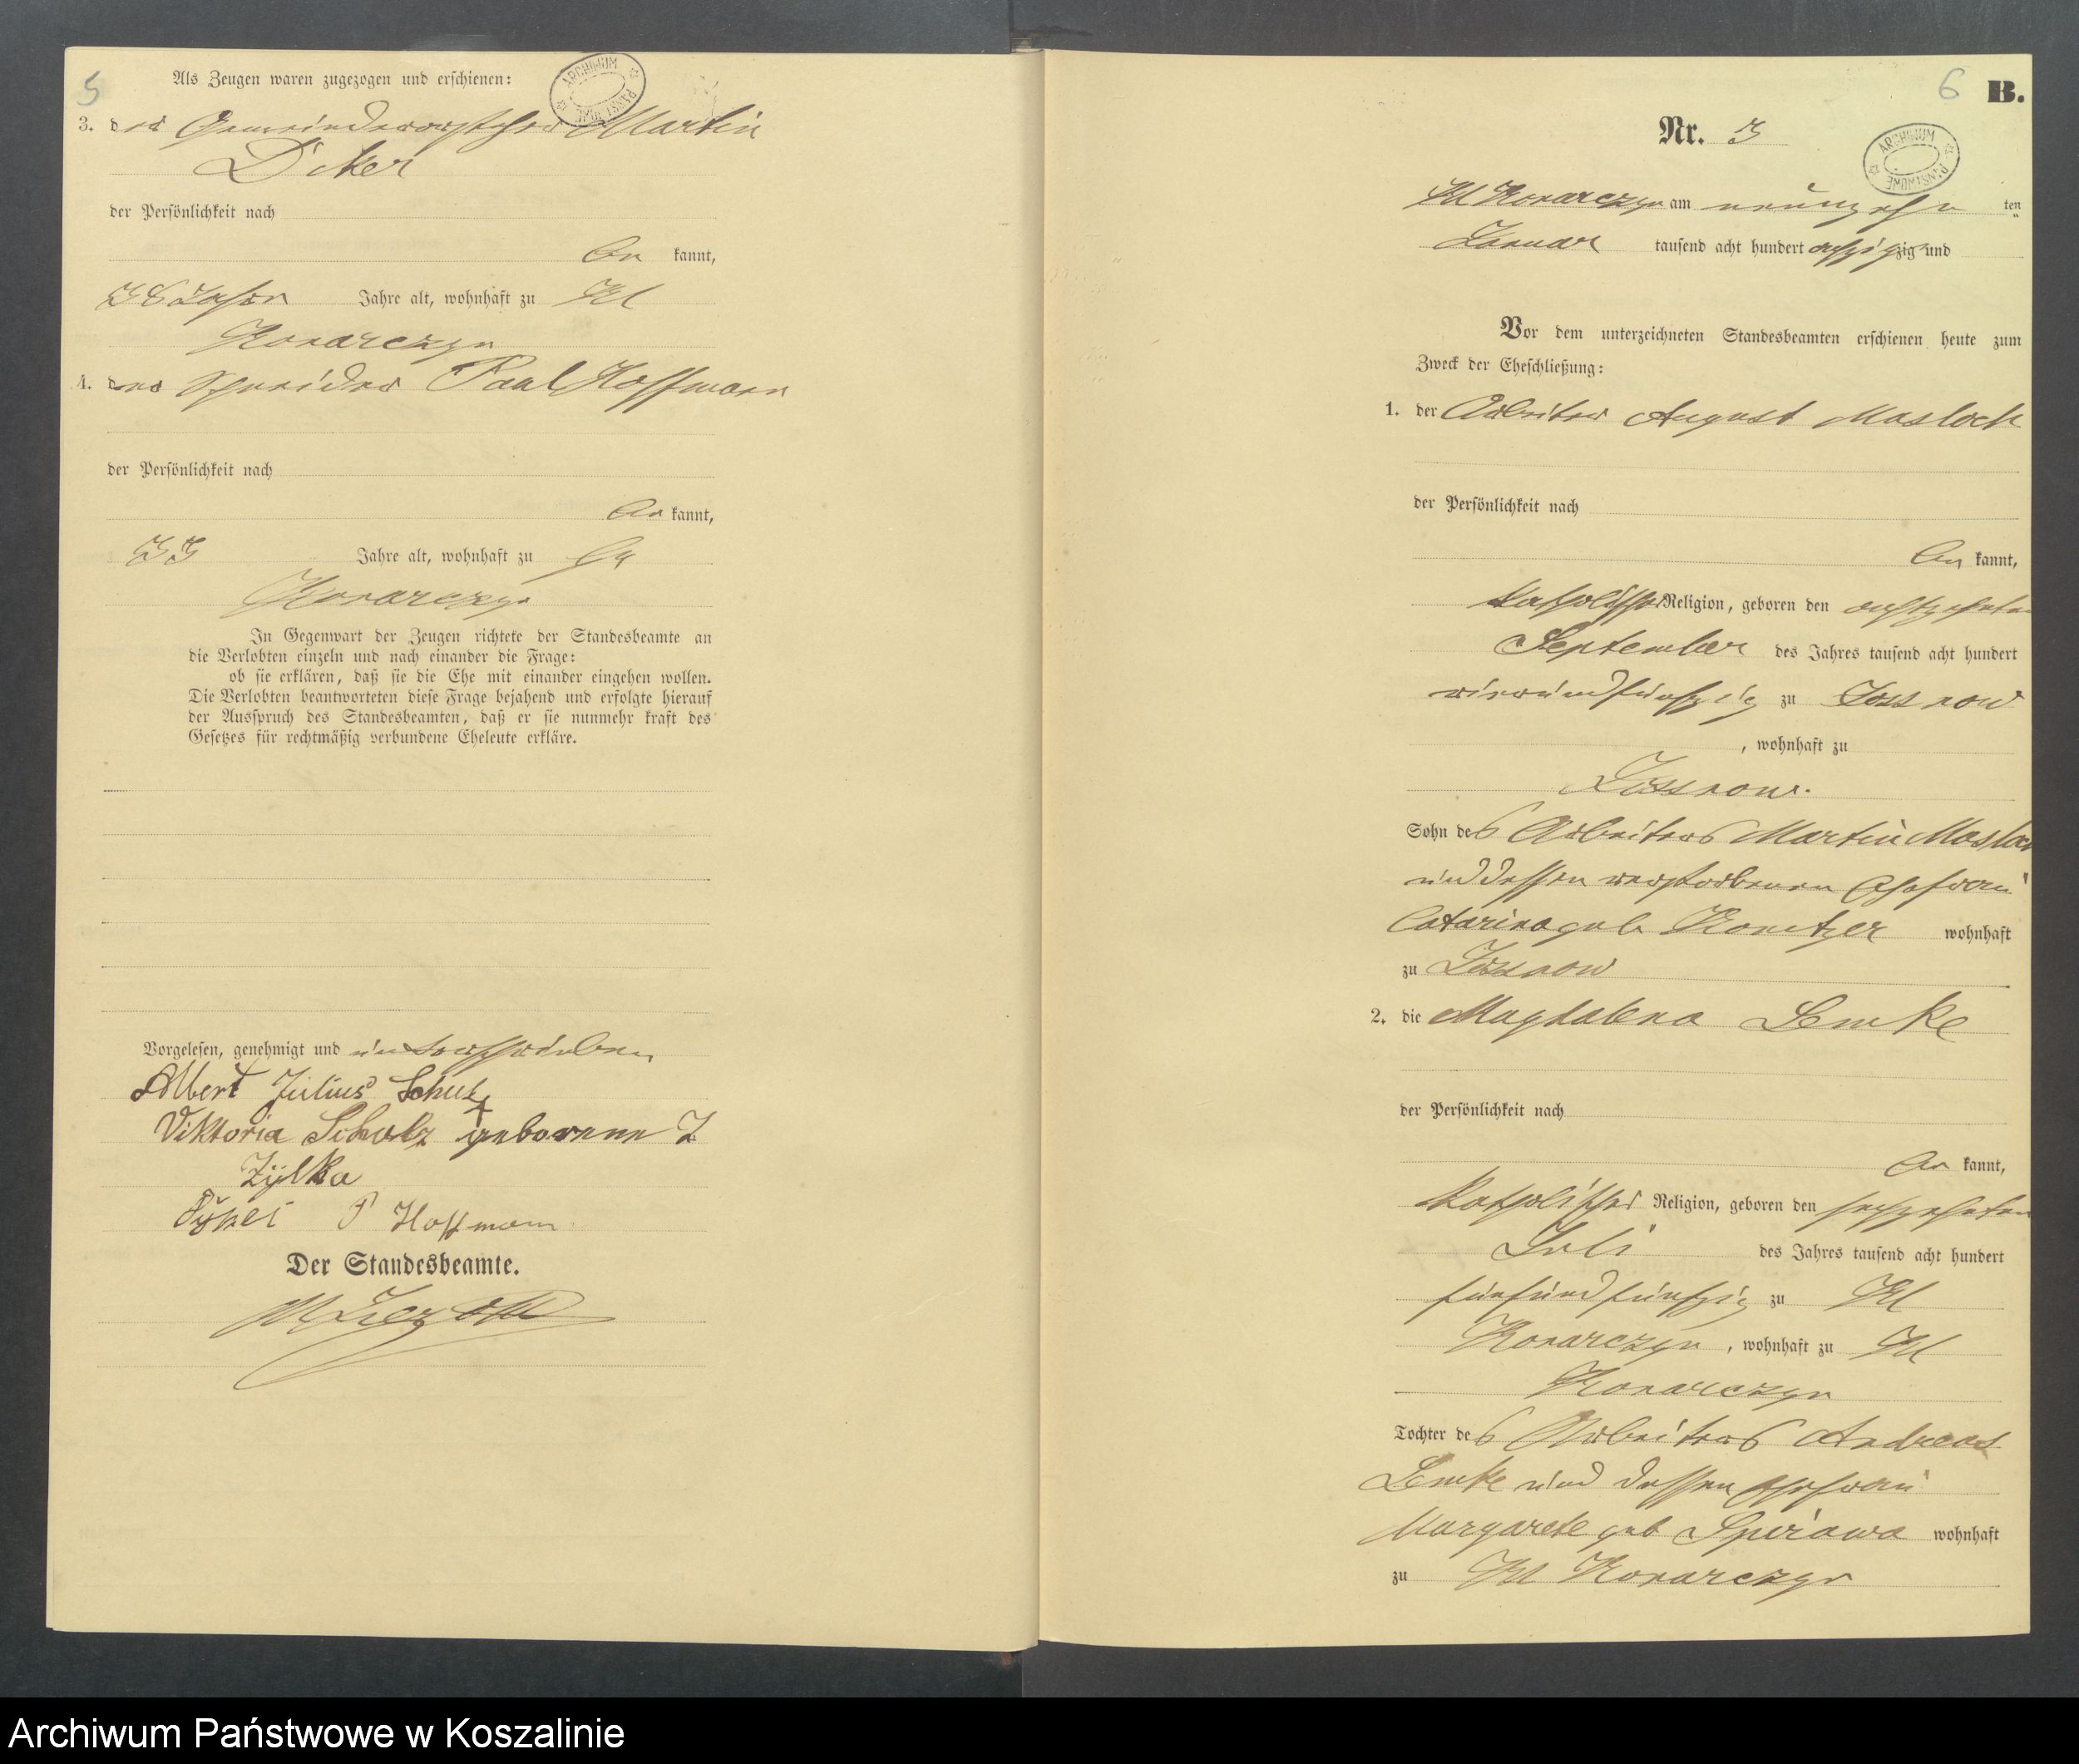 5
Als Zeugen waren zugezogen und erschienen:
ARCHIWUM PAŃSTWOWE
3. der Gemeindevorsteher Martin
der Persönlichkeit nach
kannt,
Jahre alt, wohnhaft zu Kl
Konarczyn
4. der Schneider Paul Hoffmann
der Persönlichkeit nach
kannt,
33 Jahre alt, wohnhaft zu
Konarczyn
In Gegenwart der Zeugen richtete der Standesbeamte an
die Verlobten einzeln und nach einander die Frage:
ob sie erklären, daß sie die Ehe mit einander eingehen wollen.
Die Verlobten beantworteten diese Frage bejahend und erfolgte hierauf
der Ausspruch des Standesbeamten, daß er sie nunmehr kraft des
Gesetzes für rechtmäßig verbundene Eheleute erkläre.
Vorgelesen, genehmigt und unterschrieben
Albert Julius Schulz
Viktoria Schulz geborene Z
Zylka
P Hoffmann
Der Standesbeamte.
6 B.
Nr. 3
ARCHIWUM PAŃSTWOWE
Kl Konarczyn am neunzehn ten
Januar tausend acht hundert achtzig und
Vor dem unterzeichneten Standesbeamten erschienen heute zum
Zweck der Eheschließung:
1. der Arbeiter August Masloch
der Persönlichkeit nach
kannt,
katholischer Religion, geboren den achtzehnten
September des Jahres tausend acht hundert
vierundfünfzig zu
, wohnhaft zu
Sohn des Arbeiters Martin
und dessen verstorbenen Ehefrau
Catarina geb Konitzer wohnhaft
zu
2. die Magdalena Lemke
der Persönlichkeit nach
kannt,
katholischer Religion, geboren den sechzehnten
Juli des Jahres tausend acht hundert
fünfundfünfzig zu Kl
Konarczyn, wohnhaft zu Kl
Konarczyn
Tochter des Arbeiters Andreas
Lemke und dessen Ehefrau
Margarete geb Spirawa wohnhaft
zu Kl Konarczyn
Archiwum Państwowe w Koszalinie